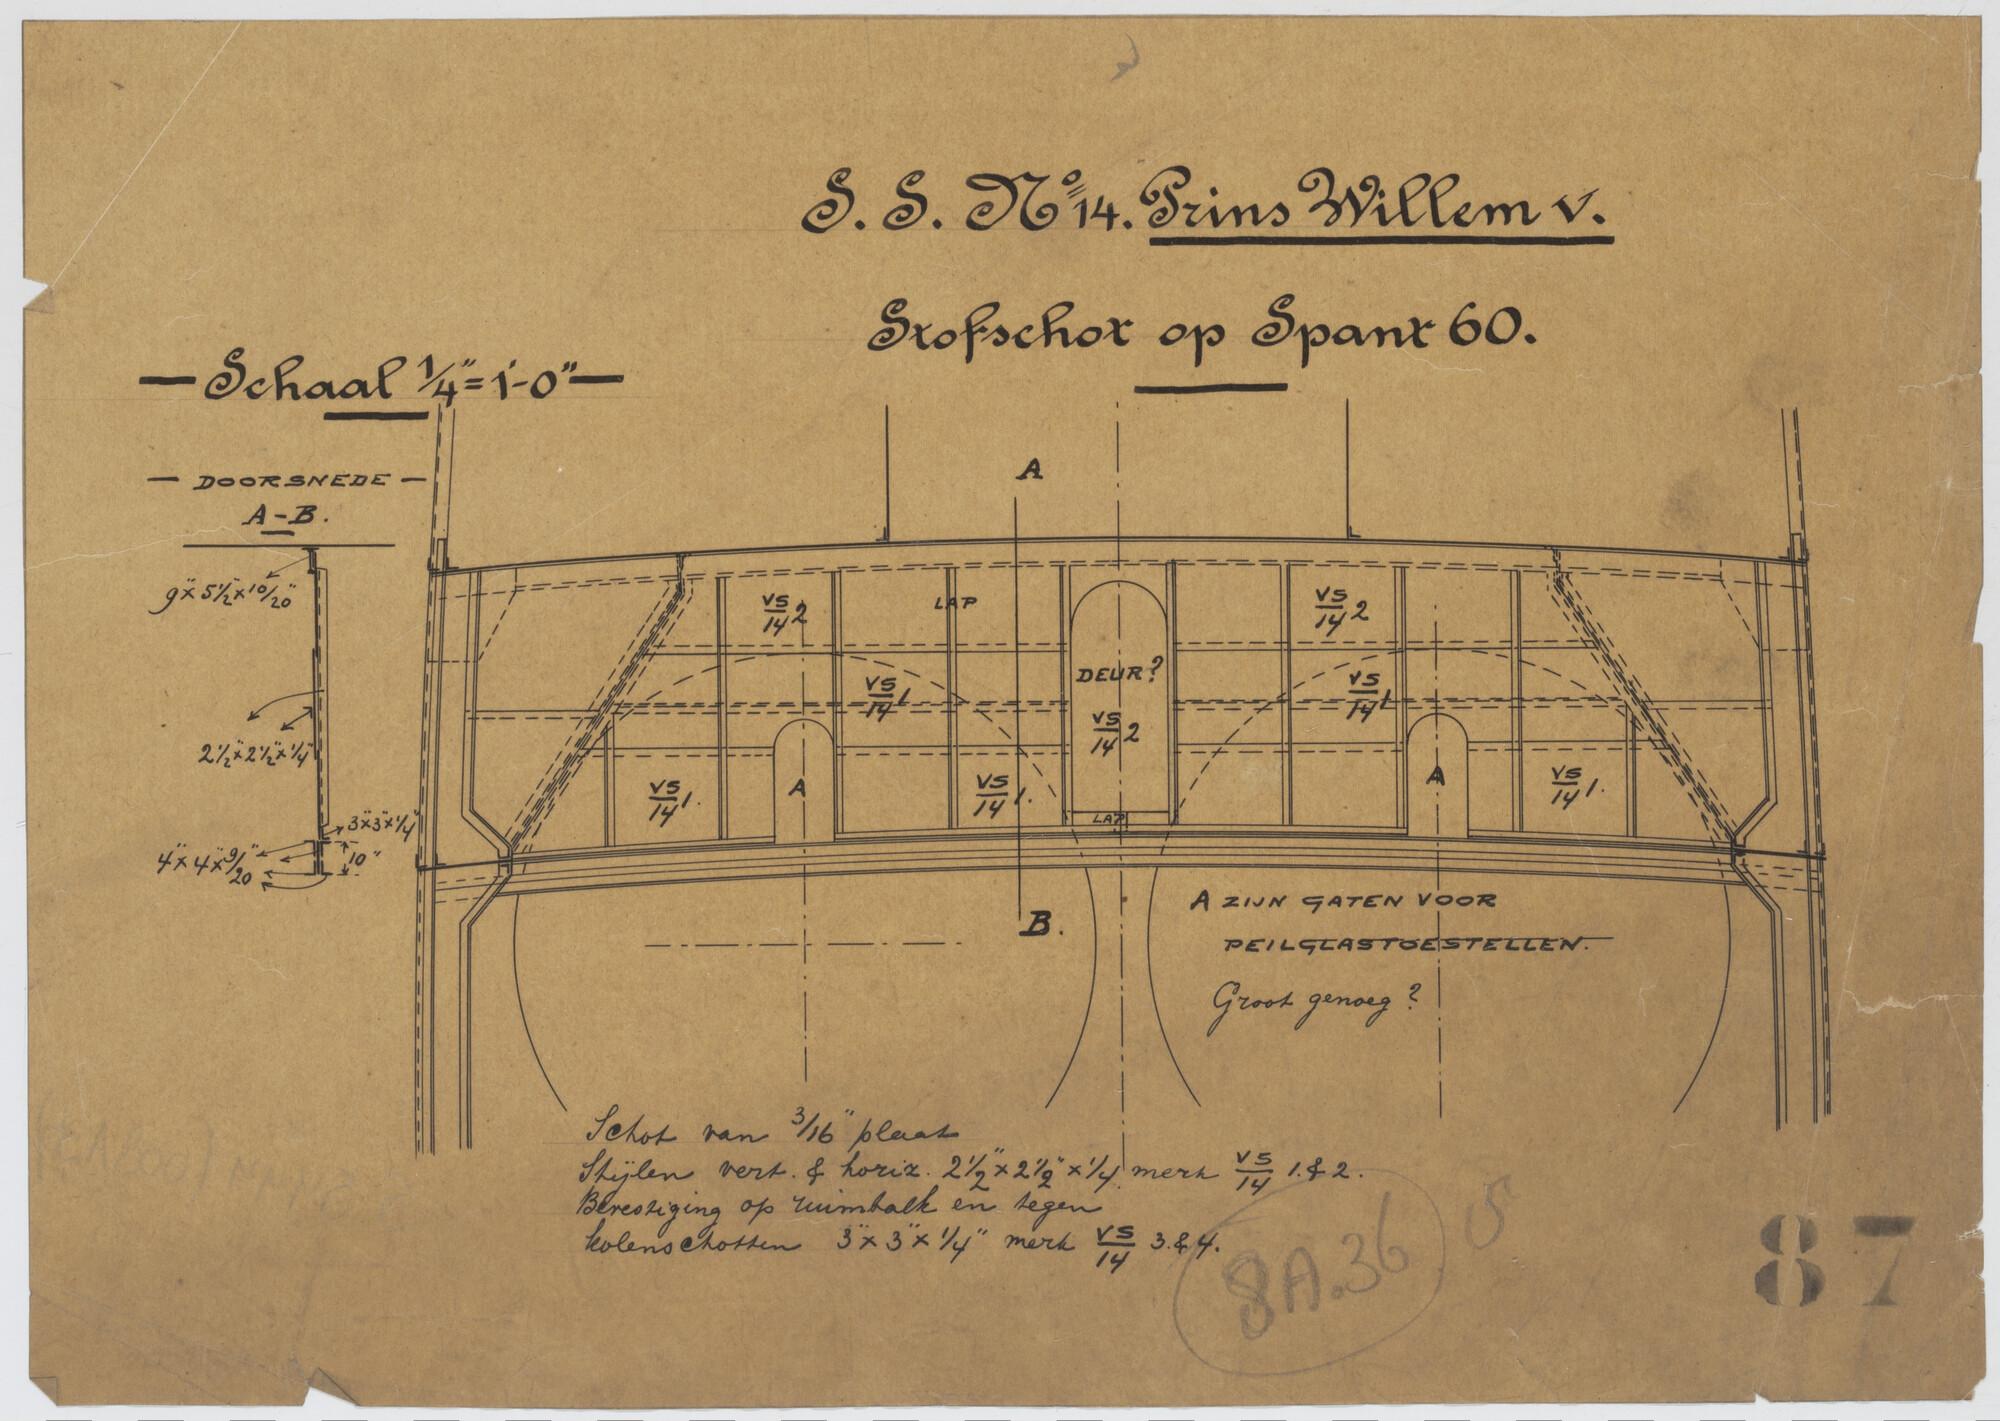 S. S. Nº 14. Prins Willem V.
Stofschot op Spant 60.
— Schaal 1/4" = 1'-0" —
— DOORSNEDE —
A-B.
9" x 5 1/2" x 10/20"
2 1/2" x 2 1/2" x 1/4"
3" x 3" x 1/4"
4" x 4" x 9/20"
10"
A
VS/14 2
LAP
VS/14 2
DEUR?
VS/14 1
VS/14 1
VS/14 2
A
A
VS/14 1.
VS/14 1.
VS/14 1.
LAP
B.
A ZIJN GATEN VOOR
PEILGLASTOESTELLEN.
Groot genoeg?
Schot van 3/16" plaat
Stijlen vert. & horiz. 2 1/2" x 2 1/2" x 1/4 merk VS/14 1. & 2.
Bevestiging op ruimbalk en tegen
kolenschotten 3" x 3" x 1/4" merk VS/14 3. & 4.
8A.36
5
87